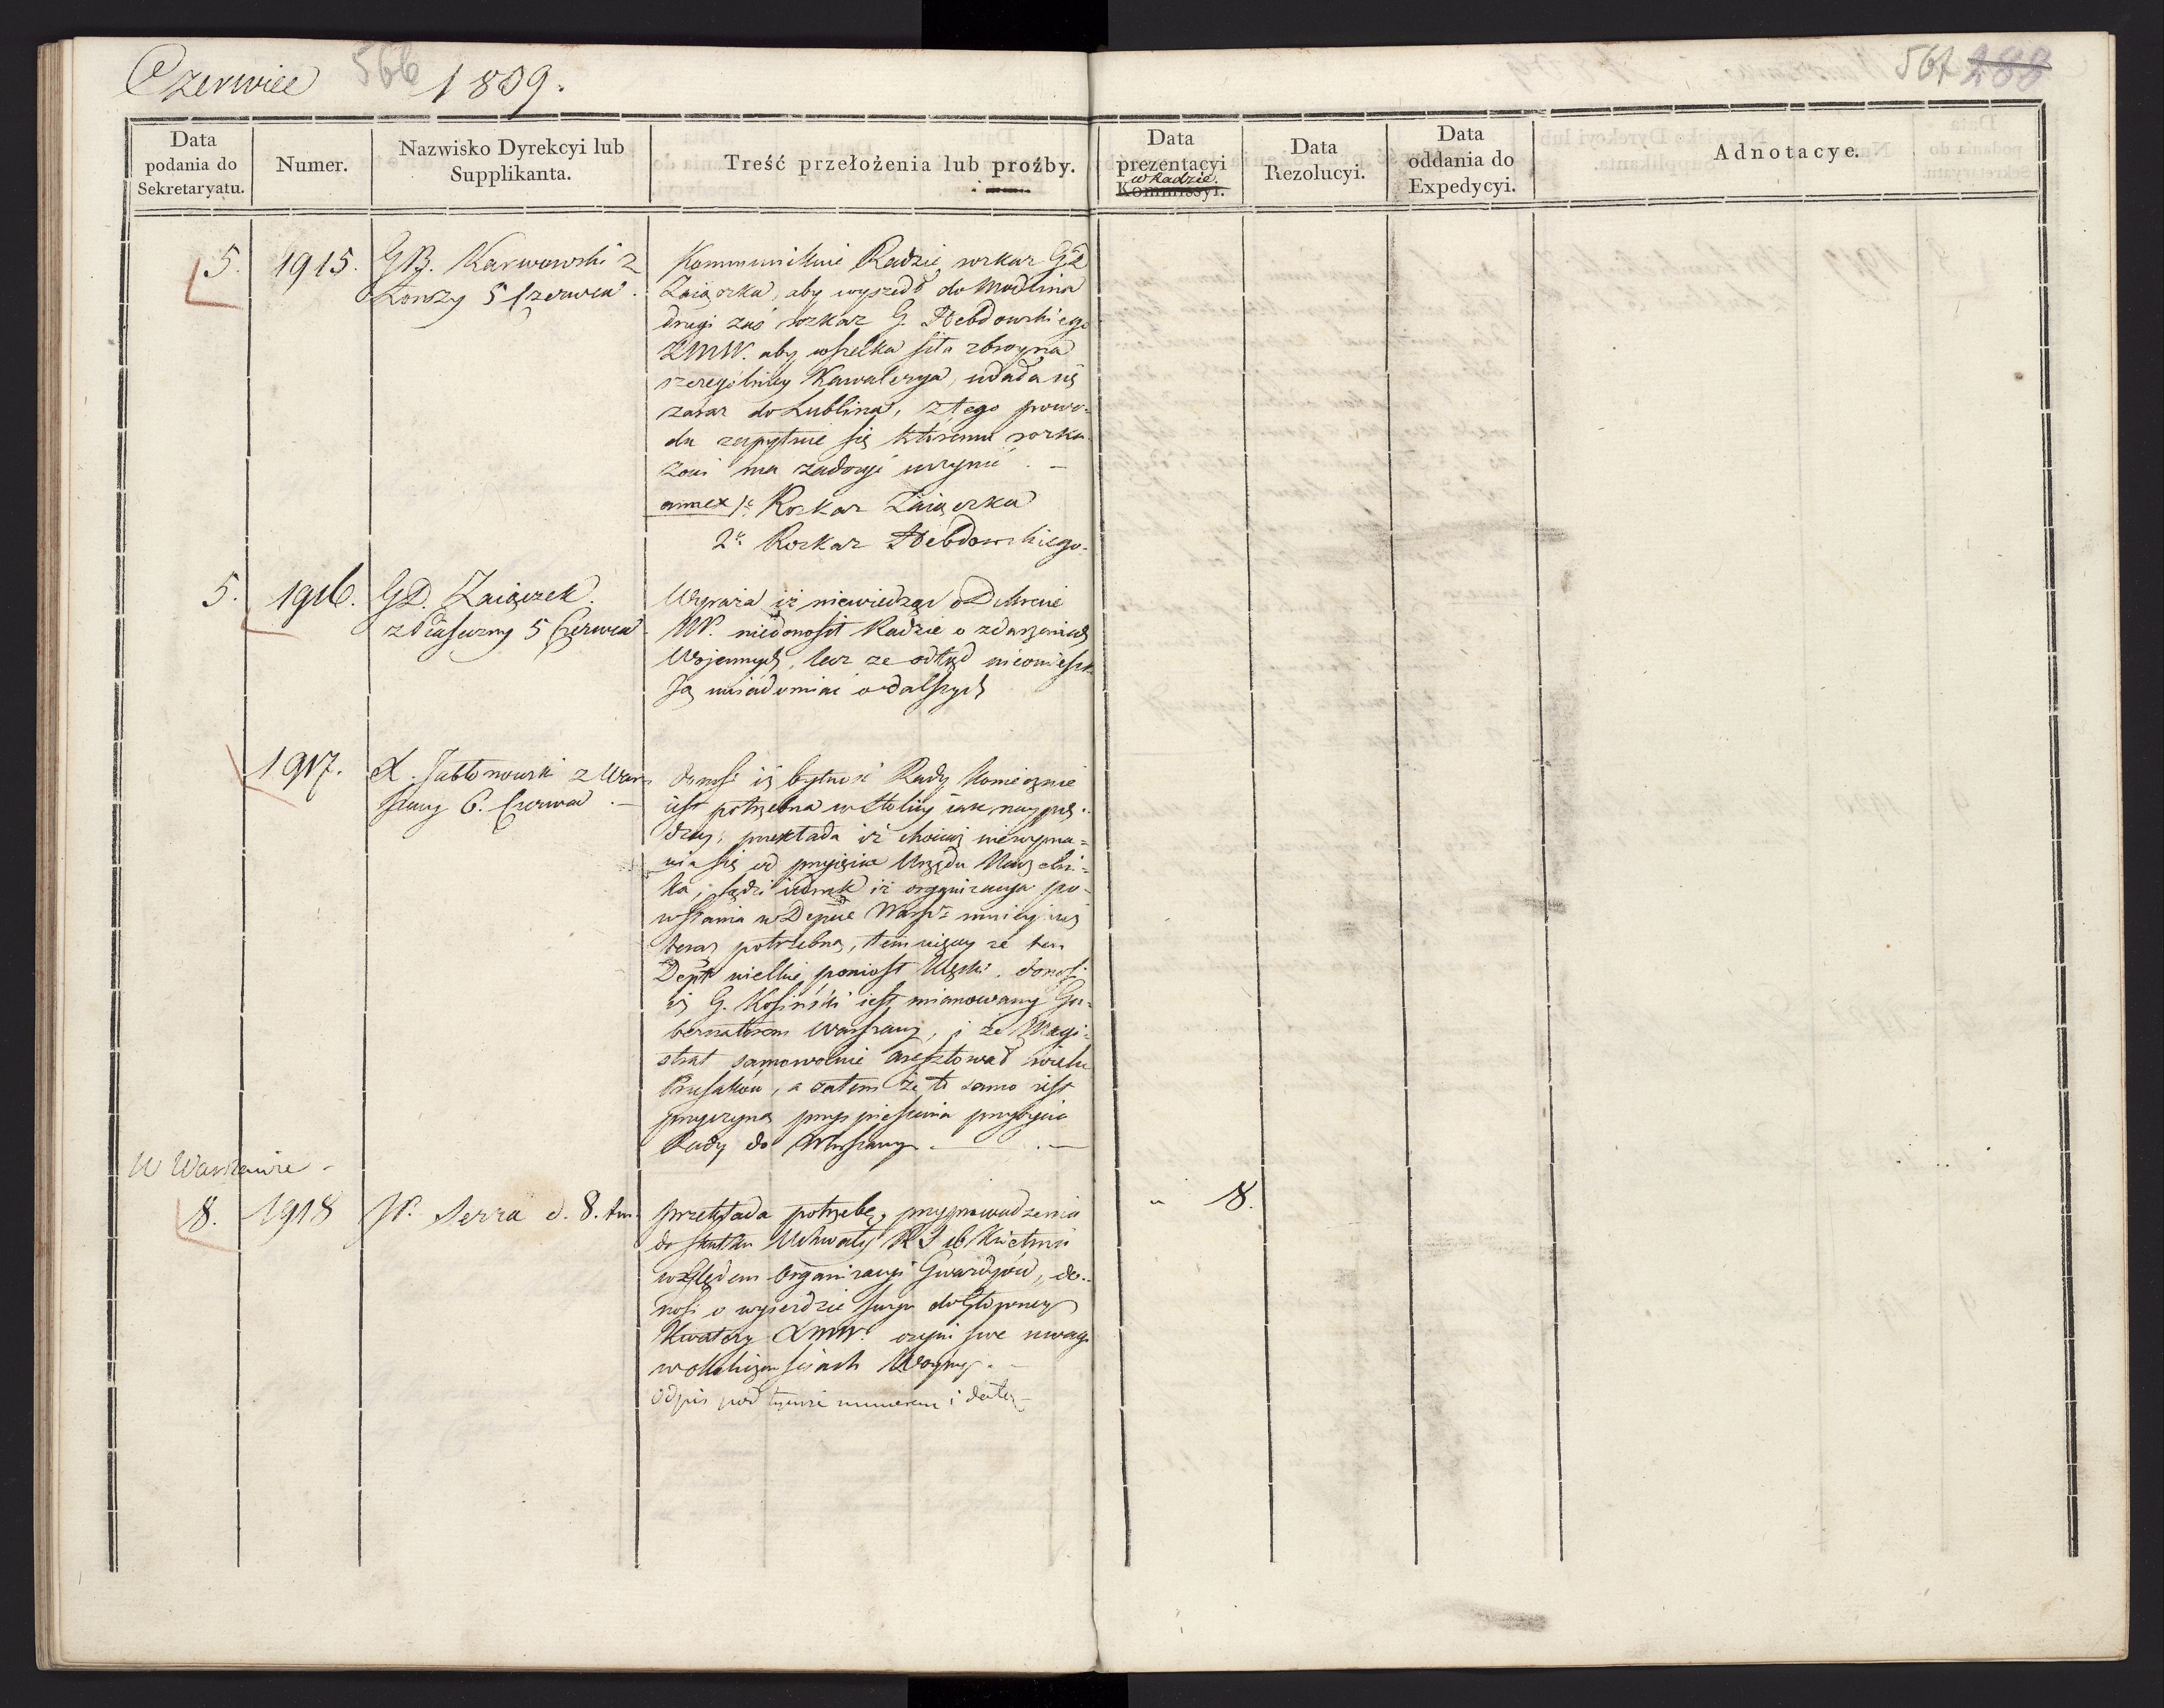 Czerwiec 566 1809.
567 288
Data
podania do
Sekretaryatu.
Numer.
Nazwisko Dyrekcyi lub
Supplikanta.
Treść przełożenia lub proźby.
Data
prezentacyi
w Radzie.
Kommissyi.
Data
Rezolucyi.
Data
oddania do
Expedycyi.
Adnotacye.
5. 1915. GB. Karwowski z
Łomży 5 Czerwca.
Kommunikuie Radzie rozkaz GD
Zaiączka, aby wyszedł do Modlina
drugi zaś rozkaz G. Hebdowskiego
ZMW. aby wszelka siła zbroyna
szczególniey Kawalerya, udała się
zaraz do Lublina, z tego powo-
du zapytuie się któremu rozka-
zowi ma zadosyć uczynić. —
annex 1o Rozkaz Zaiączka
2o Rozkaz Hebdowskiego.
5. 1916. GD. Zaiączek
z Piaseczny 5 Czerwca
Wyraża iż niewiedząc o Dekrecie
NP. niedonosił Radzie o zdarzeniach
Wojennych, lecz ze odtąd nieomieszka
Ją uwiadomiać o dalszych
1917. X. Jabłonowski z War
szawy 6. Czerwca. —
donosi iż bytność Rady koniecznie
iest potrzebna w Stolicy iak nayprę-
dzey, przekłada iż chociaż niewyma-
wia się od przyięcia Urzędu Naczelni-
ka, sądzi iednak iż organizacya po-
wstania w Depcie Warsz: mniey iuż
teraz potrzebna, tem więcey ze ten
Dept wielkie poniosł klęski. donosi
iż G. Kosiński iest mianowany Gu-
bernatorem Warszawy, i że Magi-
strat samowolnie aresztował wielu
Prusaków, a zatem że to samo iest
przyczyną przyspieszenia przybycia
Rady do Warszawy. —
W Warszawie -
8. 1918 JP. Serra d. 8. t.m.
przekłada potrzebę, przyprowadzenia
do skutku Uchwały RS Kwietnia
względem Organizacyi Gwardyów, do-
nosi o wyieździe swym do Głowney
Kwatery XMW. czyni swe uwagi
w okolicznościach Woyny. -
odpis pod tymże numerem i datą -
" 8.